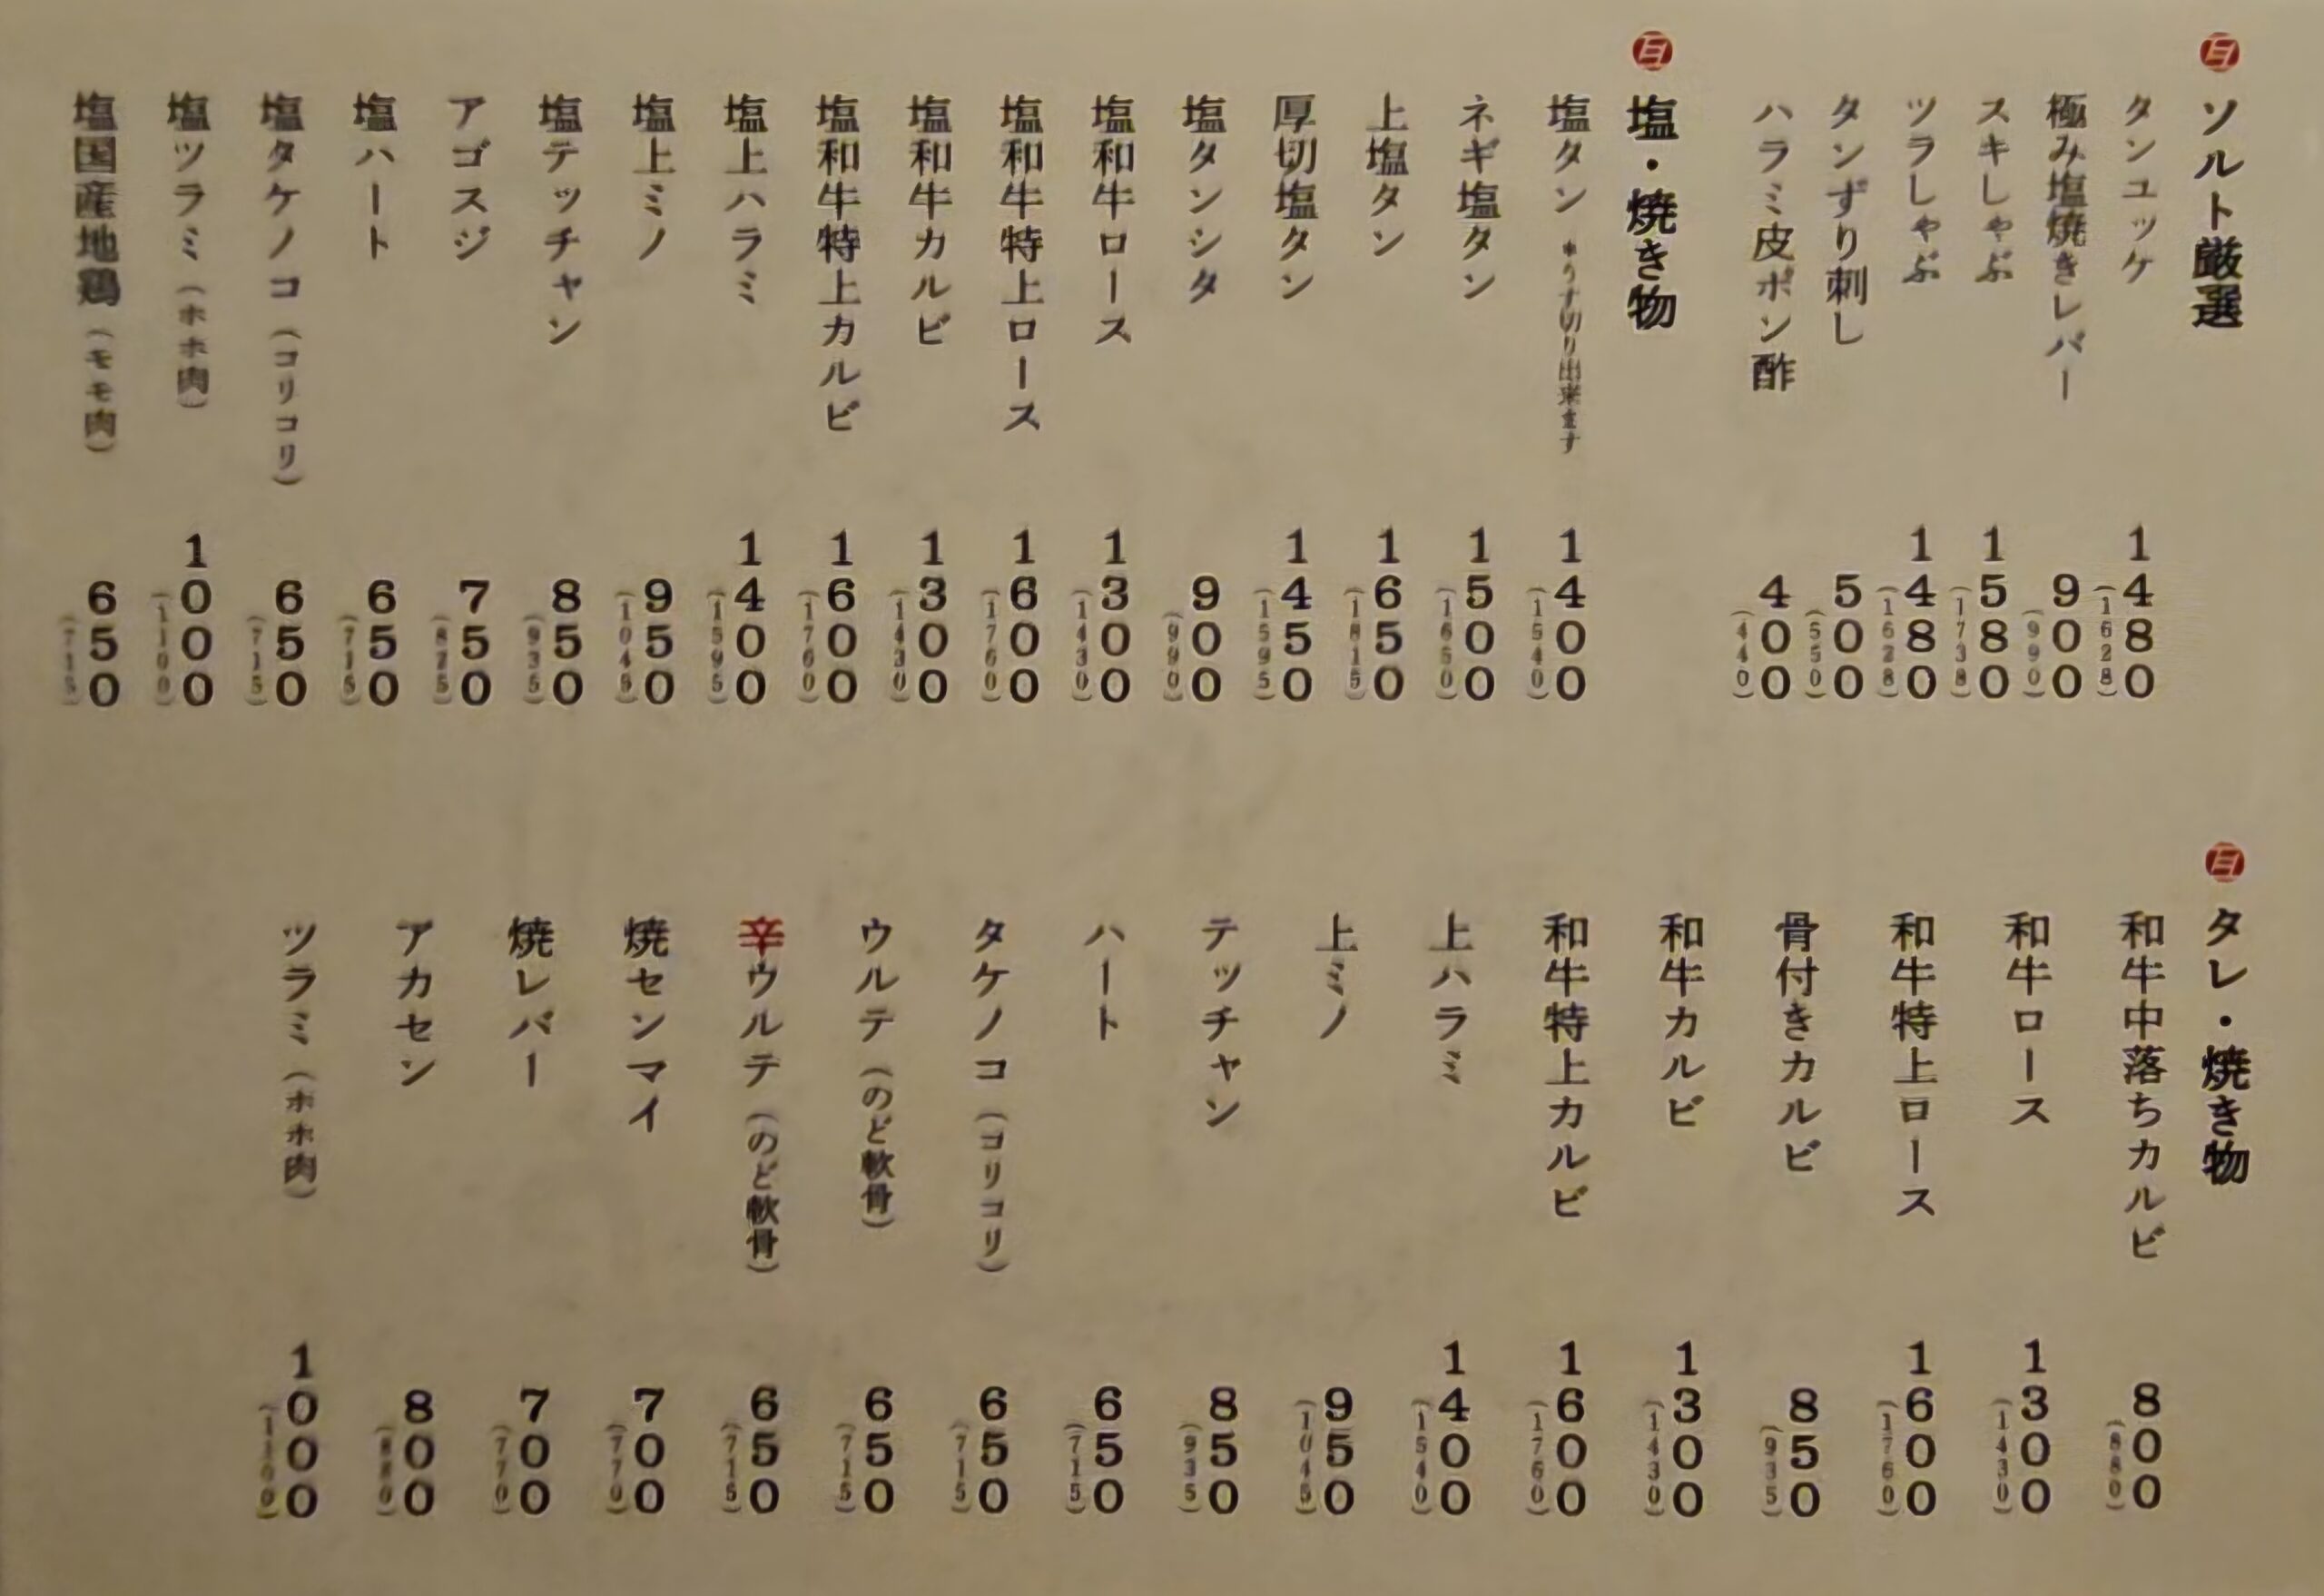 ソルト厳選
タンユッケ 1480 (1628)
極み塩焼きレバー 900 (990)
スキしゃぶ 1580 (1738)
ツラしゃぶ 1480 (1628)
タンずり刺し 500 (550)
ハラミ皮ポン酢 400 (440)
塩・焼き物
塩タン *うす切り出来ます 1400 (1540)
ネギ塩タン 1500 (1650)
上塩タン 1650 (1815)
厚切塩タン 1450 (1595)
塩タンシタ 900 (990)
塩和牛ロース 1300 (1430)
塩和牛特上ロース 1600 (1760)
塩和牛カルビ 1300 (1430)
塩和牛特上カルビ 1600 (1760)
塩上ハラミ 1400 (1595)
塩上ミノ 950 (1045)
塩テッチャン 850 (935)
アゴスジ 750 (825)
塩ハート 650 (715)
塩タケノコ(コリコリ) 650 (715)
塩ツラミ(ホホ肉) 1000 (1100)
塩国産地鶏(モモ肉) 650 (715)
タレ・焼き物
和牛中落ちカルビ 800 (880)
和牛ロース 1300 (1430)
和牛特上ロース 1600 (1760)
骨付きカルビ 850 (935)
和牛カルビ 1300 (1430)
和牛特上カルビ 1600 (1760)
上ハラミ 1400 (1540)
上ミノ 950 (1045)
テッチャン 850 (935)
ハート 650 (715)
タケノコ(コリコリ) 650 (715)
ウルテ(のど軟骨) 650 (715)
辛ウルテ(のど軟骨) 650 (715)
焼センマイ 700 (770)
焼レバー 700 (770)
アカセン 800 (880)
ツラミ(ホホ肉) 1000 (1100)